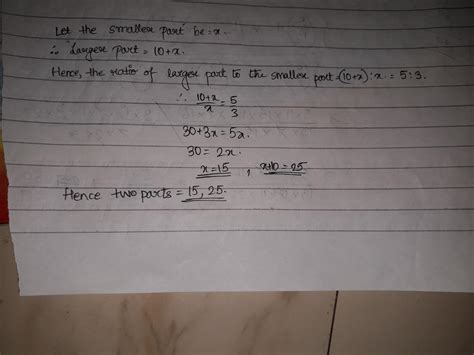 Let the smaller part be = x.
∴ Larger part = 10+x.
Hence, the ratio of larger part to the smaller part = (10+x) : x = 5 : 3.
∴ 10+x/x = 5/3
30+3x = 5x.
30 = 2x.
x = 15 , x+10 = 25.
Hence two parts = 15, 25.